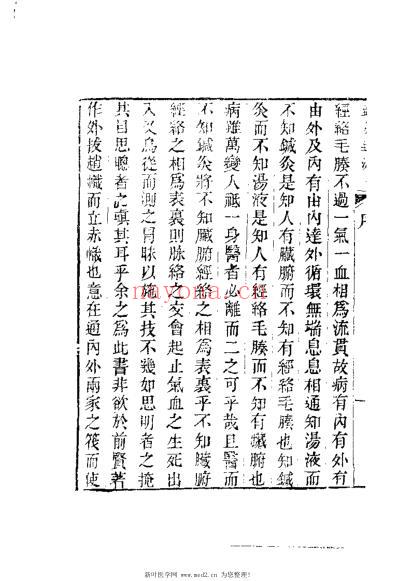 序
經絡毛腠不過一氣一血相爲流貫故病有內有外有
由外及內有由內達外循環無端息息相通知湯液而
不知鍼灸是知人有臟腑而不知有經絡毛腠也知鍼
灸而不知湯液是知人有經絡毛腠而不知有臟腑也
病雖萬變人祗一身醫者必離而二之可乎哉且醫而
不知鍼灸將不知臟腑經絡之相爲表裏乎不知臟腑
經絡之相爲表裏則脉絡之交會起止氣血之生死出
入又烏從而測之冐昧以施其技不幾如思明者之掩
其目思聰者之瑱其耳乎余之爲此書非欲於前賢著
作外拔趙幟而立赤幟也意在通內外兩家之筏而使
nayona.cn
新叶医学网 www.med2.cn 为您整理!